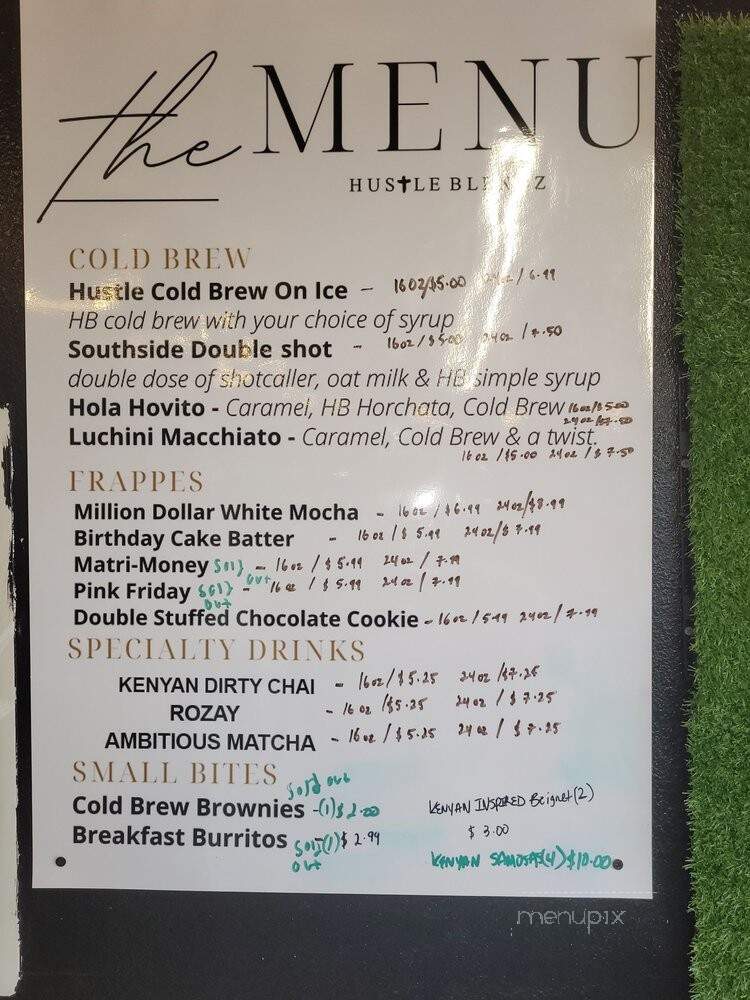 the MENU
HUS✝LE BLENDZ
COLD BREW
Hustle Cold Brew On Ice - 16oz/$5.00 24oz / 6.99
HB cold brew with your choice of syrup
Southside Double shot - 16oz/$5.00 24oz / 7.50
double dose of shotcaller, oat milk & HB simple syrup
Hola Hovito - Caramel, HB Horchata, Cold Brew 16oz/$5.00
24oz/$7.50
Luchini Macchiato - Caramel, Cold Brew & a twist.
16oz /$5.00 24oz / $7.50
FRAPPES
Million Dollar White Mocha - 16oz / $6.99 24oz/$8.99
Birthday Cake Batter - 16oz / $5.99 24oz/$ 7.99
Matri-Money Sold out - 16oz / $5.99 24oz / 7.99
Pink Friday Sold out - 16oz / $5.99 24oz / 7.99
Double Stuffed Chocolate Cookie - 16oz / 5.99 24oz / 7.99
SPECIALTY DRINKS
KENYAN DIRTY CHAI - 16oz/$5.25 24oz /$7.25
ROZAY - 16oz /$5.25 24oz / $7.25
AMBITIOUS MATCHA - 16oz / $5.25 24oz / $7.25
SMALL BITES
Sold out
Cold Brew Brownies -(1)$2.00
KENYAN INSPIRED Beignet(2)
$3.00
Breakfast Burritos -(1)$2.99
Sold out
KENYAN SAMOSAS(4)$10.00
menupix